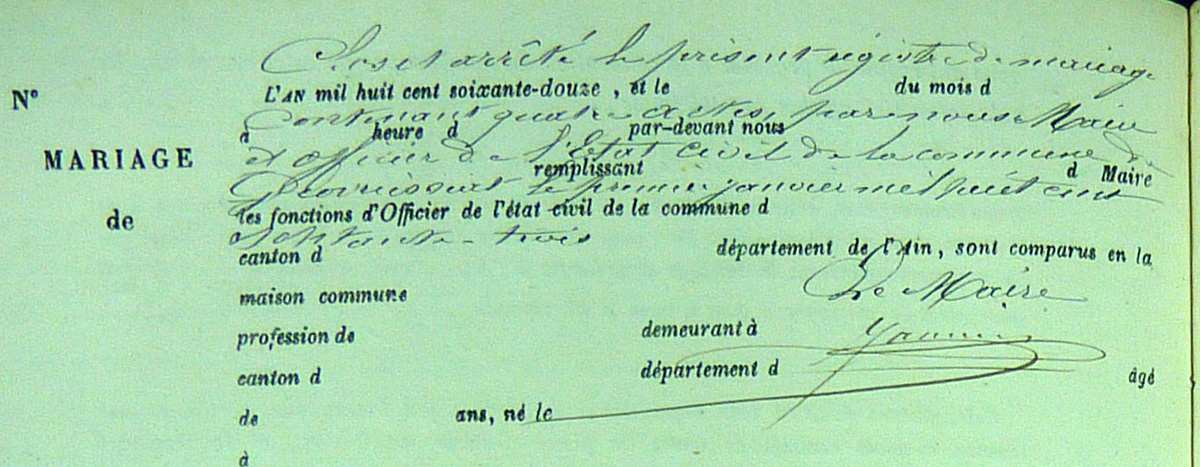 Clos et arrêté le présent régistre de mariage
N° L'AN mil huit cent soixante-douze, et le du mois d
contenant quatre actes, par nous Maire
à heure d par-devant nous
MARIAGE
et officier de l'Etat civil de la commune de
remplissant d Maire
le premier janvier mil huit cent
de les fonctions d'Officier de l'état civil de la commune d
septante-trois
canton d département de l'Ain, sont comparus en la
maison commune Le Maire
profession de demeurant à
canton d département d âgé
de ans, né le
à